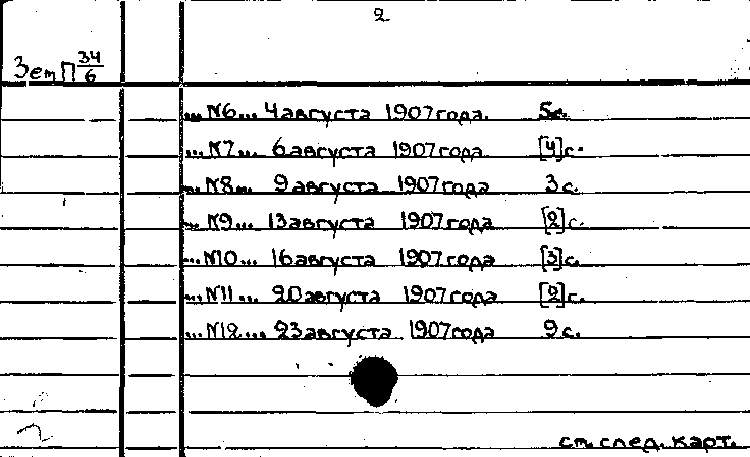 2
Зем П 34/6
... №6... 4 августа 1907 года. 5 с.
... №7... 6 августа 1907 года. [4] с.
... №8... 9 августа 1907 года 3 с.
... №9... 13 августа 1907 года [2] с.
... №10... 16 августа 1907 года [3] с.
... №11... 20 августа 1907 года [2] с.
... №12... 23 августа 1907 года 2 с.
см. след. карт.